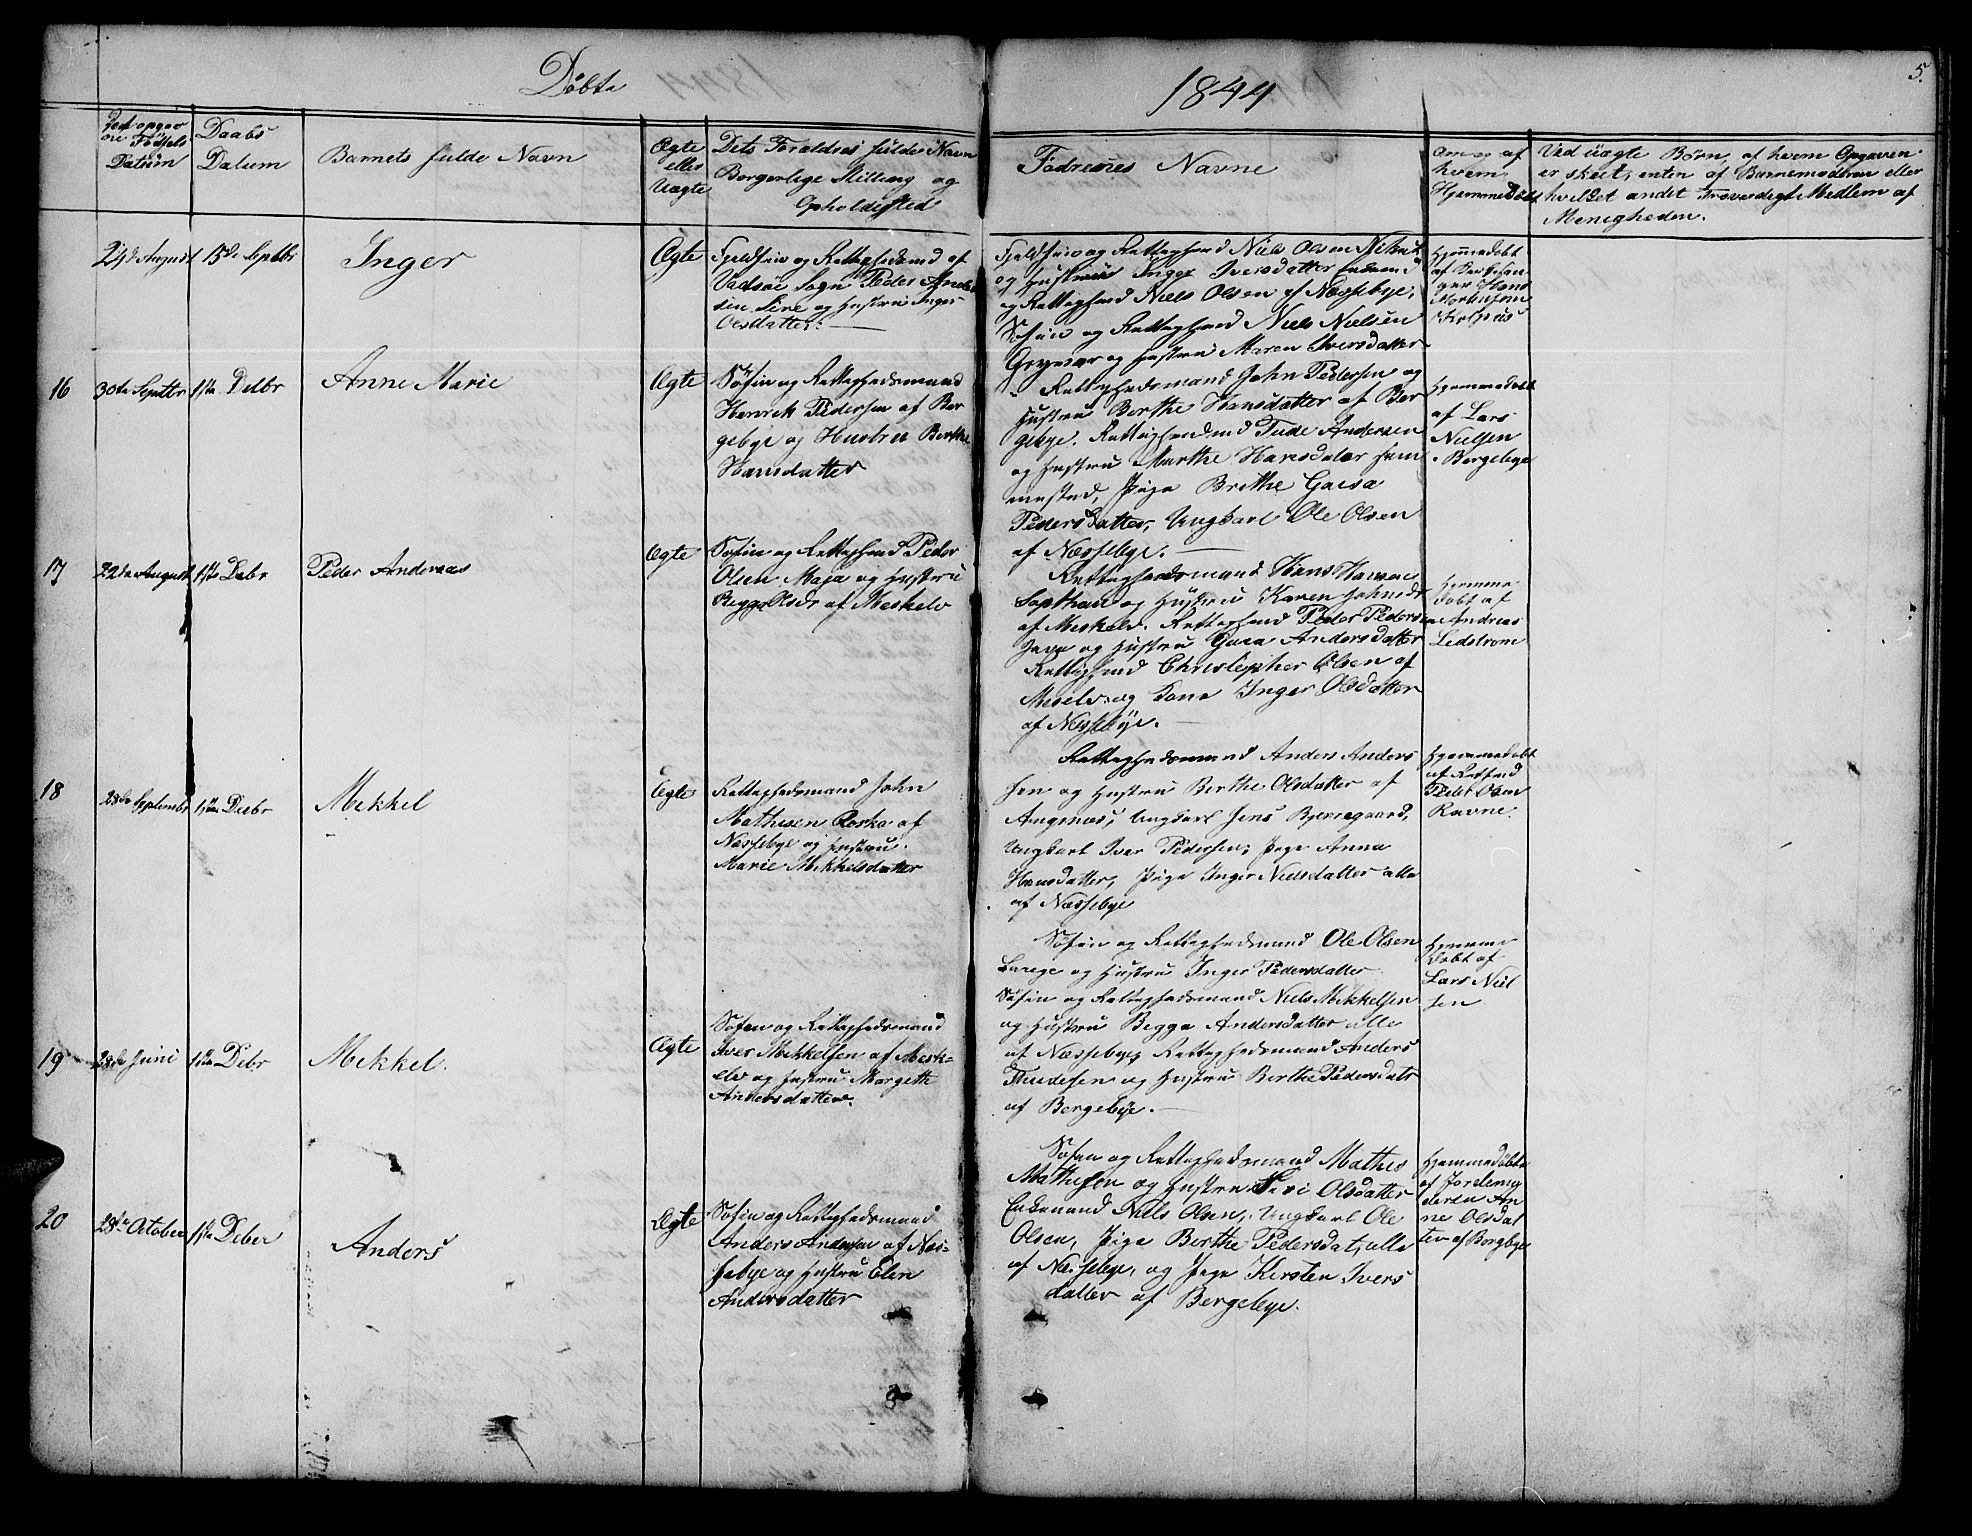 Döbte
1844
5.
Ved opgivne Födsels Datum
Daabs Datum
Barnets fulde Navn
Ægte eller Uægte
Dets Forældres fulde Navn
Borgerlige Stilling og
Opholdssted
Fadrenes Navne
Om og af hvem Hjemmedöbt
Ved uægte Børn, af hvem Opgaven
er skeet, enten af Barnemoderen eller
hvilket andet Troværdigt Medlem af
Menigheden.
24de August
15de Septbr
Inger
Ægte
Fjeldfin og Rettighedsmd af
Vadsöe Sogn Peder Ander
sen og Hustrue Inger
Olsdatter.
Fjeldfin og Rettighmd Niels Olsen
og Hustrue Inger Iversdatter Enkemd
og Rettighmd Niels Olsen af Næssebye,
Söfin og Rettighmd Niels Nielsen
og Hustru Maren Iversdatter
Hjemmedöbt
af
Hans
Mortensen
16
30de Septbr
1ste Debr
Anne Marie
Ægte
Söfin og Rettighedsmand
Henrik Pedersen af Ber
gebye og Hustru Berthe
Hansdatter
Rettighedsmand John Pedersen og
Hustru Berthe Hansdatter af Ber
gebye. Rettighedsmd Tude Andersen
og Hustru Marthe Hansdatter sam
mested, Pige Brithe Gaisa
Pedersdatter, Ungkarl Ole Olsen
af Næssebye.
Hjemmedöbt
af Lars
Nielsen
Bergebye
17
22de August
1ste Debr
Peder Andreas
Ægte
Söfin og Rettighmd Peder
Olsen Maja og Hustru
Begga Olsdr af Meskelv
Rettighedsmand Hans Hansen
og Hustru Karen Johnsdr
af Meskelv. Rettighmd Peder Peders
og Hustru Gaia Andersdatter
Rettighmd Christopher Olsen af
Meselv og Kone Inger Olsdatter
af Næssebye.
Hjemme
döbt af
Andreas
Ledstrøm
18
28de Septembr
1ste Debr
Mekkel
Ægte
Rettighedsmand John
Mathisen Roska af
Næssebye og Hustru
Marie Mekkelsdatter
Rettighedsmand Anders Anders
sen og Hustru Berthe Olsdatter af
Angsnæs, Ungkarl Jens Bjerregaard,
Ungkarl Iver Pedersen, Pige Anna
Hansdatter, Pige Inger Nielsdatter alle
af Næssebye
Hjemmedöbt
af Retsmd
Peder Olsen
Ravne.
19
28de Juni
1ste Debr
Mekkel.
Ægte
Söfin og Rettighedsmand
Iver Mekkelsen af Mesk-
elv og Hustru Margethe
Andersdatter.
Söfin og Rettighedsmand Ole Olsen
og Hustru Inger Pedersdatter
Söfin og Rettighedsmand Niels Mekkelsen
og Hustru Begga Andersdatter alle
af Næssebye, Rettighedsmand Anders
Thudesen og Hustru Berthe Pedersdatr
af Bergebye.
Hjemme
döbt af
Lars Niel
sen
20
28de October
1ste Deber
Anders
Ægte
Söfin og Rettighedsmand
Anders Andersen af Næs-
sebye og Hustru Elen
Andersdatter
Söfin og Rettighedsmand Mathis
Mathisen og Hustru Siri Olsdatter
Enkemand Niels Olsen, Ungkarl Ole
Olsen, Pige Berthe Pedersdat, alle
af Næssebye, og Pige Kirsten Ivers
datter af Bergebye.
Hjemmedöbt
af Jordemo
deren An
ne Olsdat
ter af Bergbye